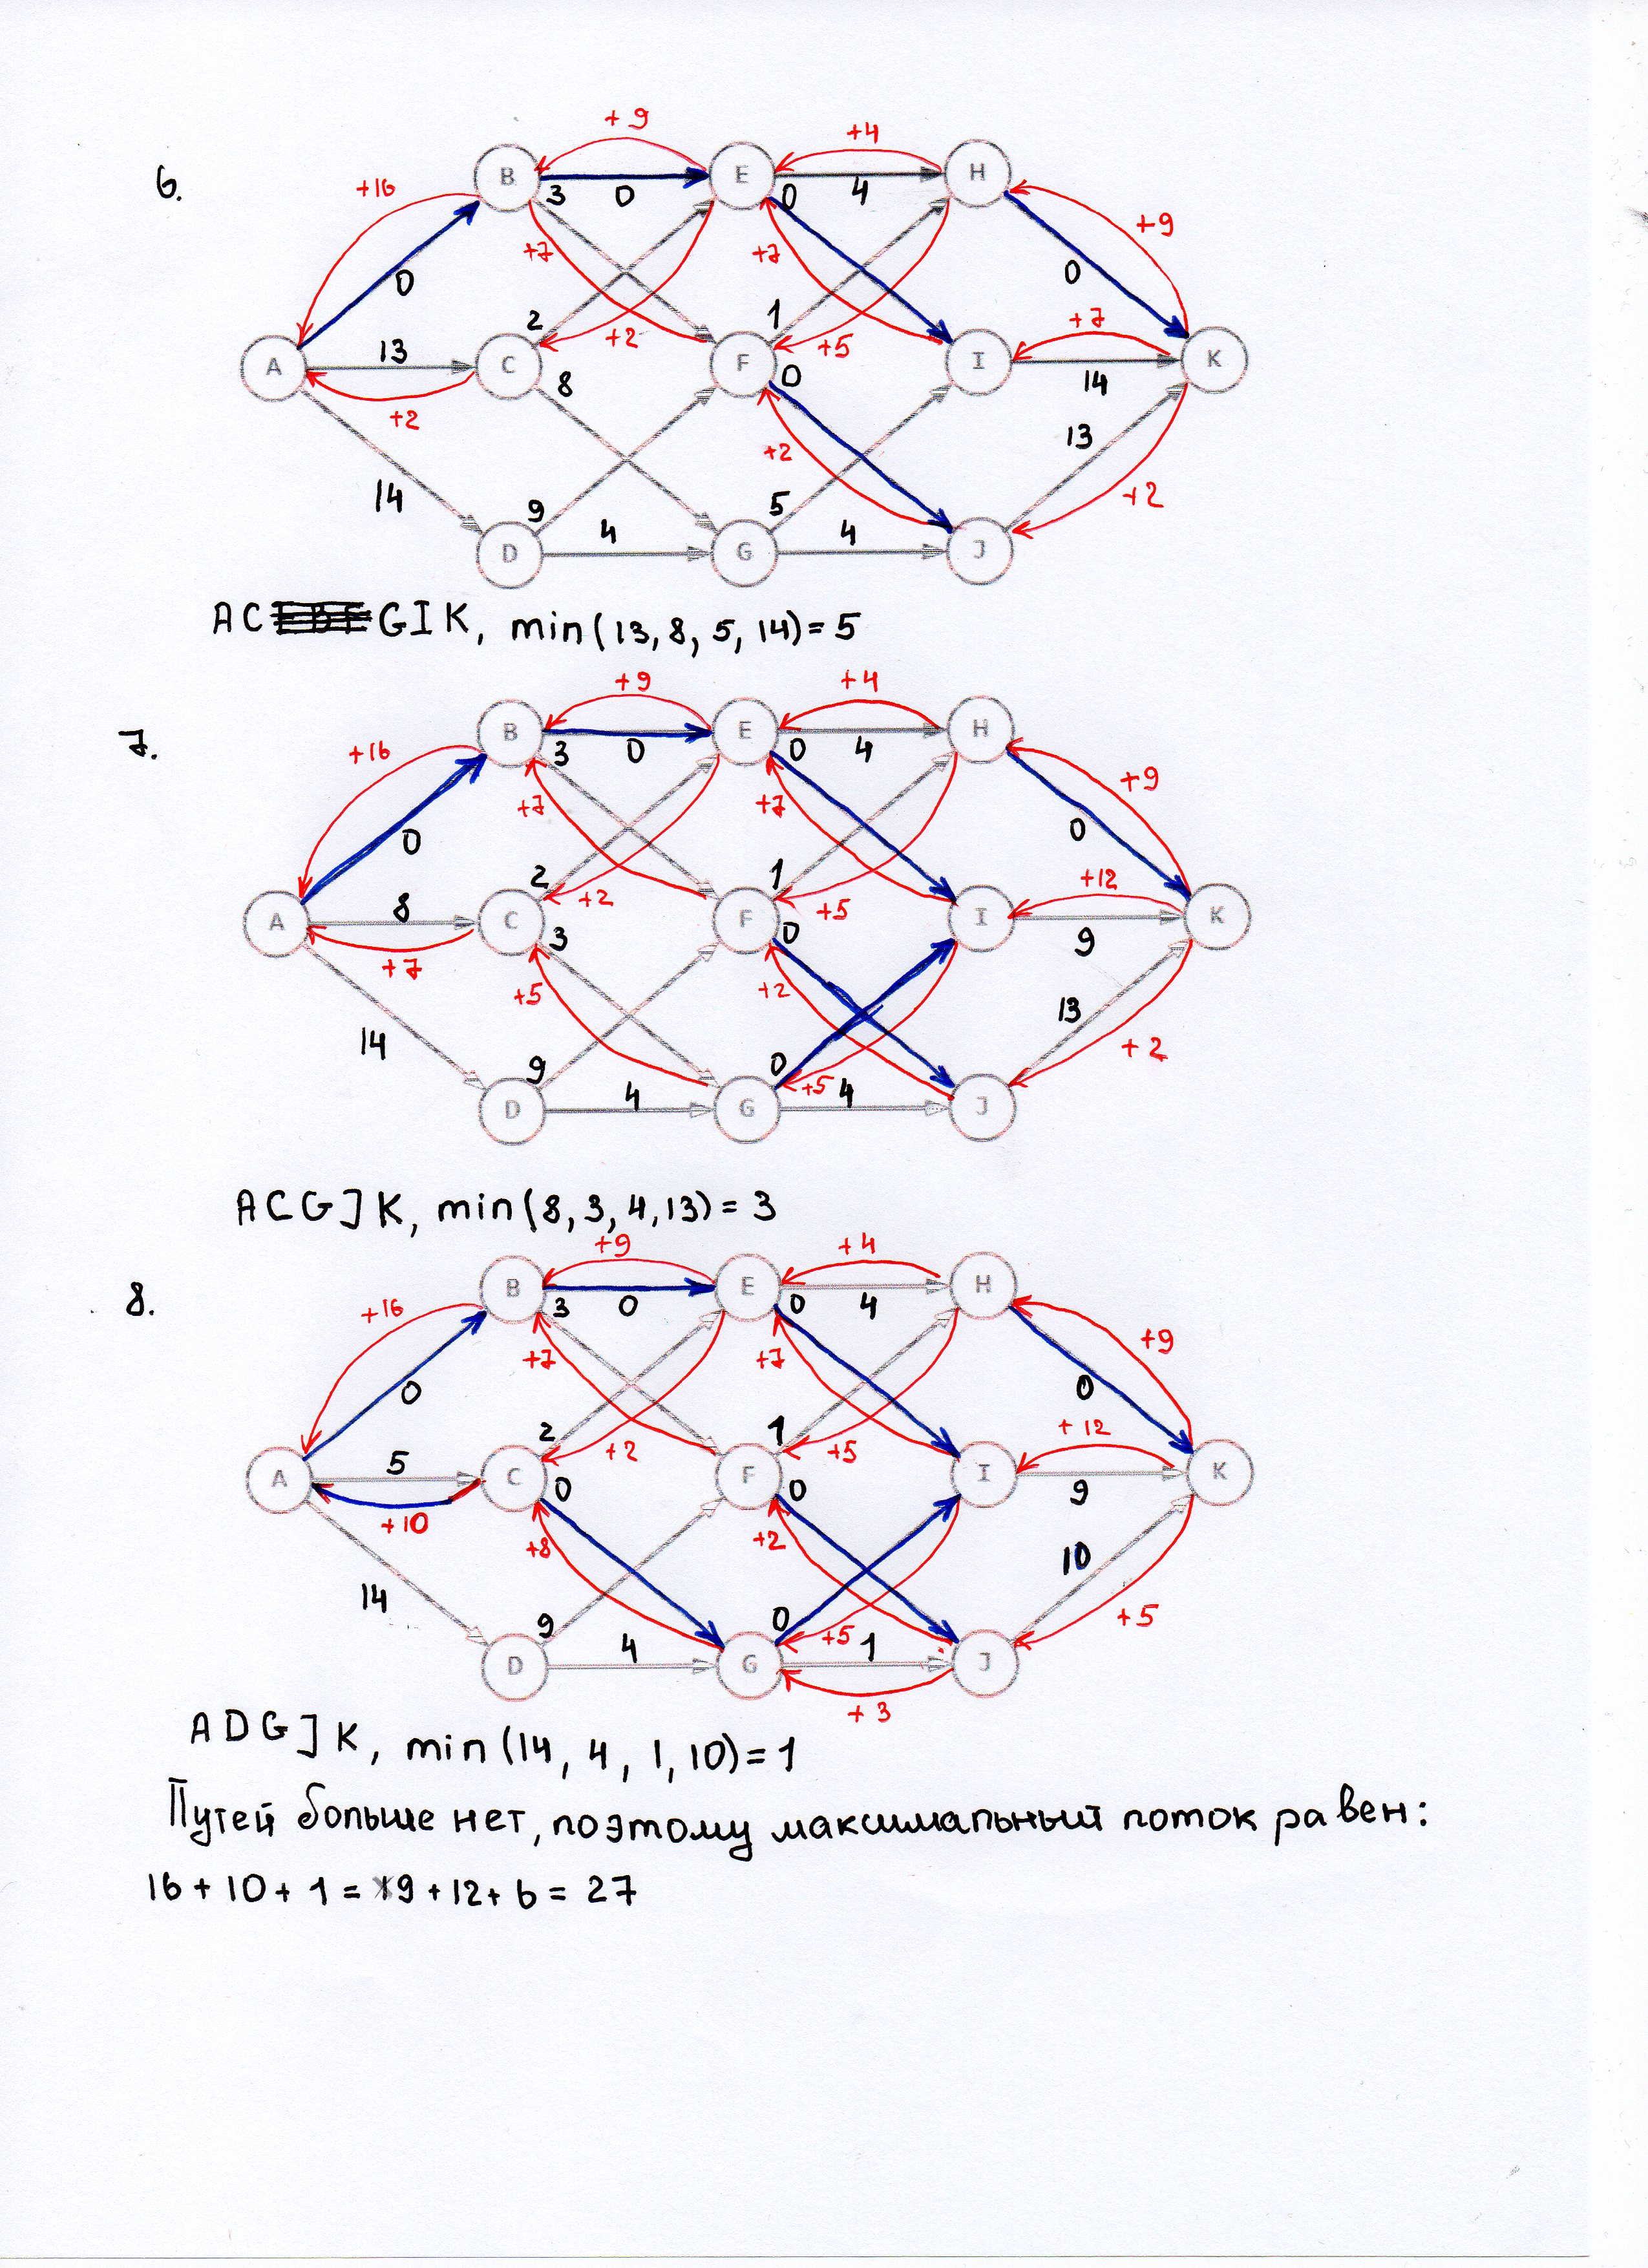 6.
+9
+4
+16
B
E
H
3
0
0
4
+9
+7
+7
0
0
2
1
+2
+5
+7
A
13
C
F
I
K
8
0
14
+2
+2
13
14
9
5
+2
4
4
D
G
J
AC GIK, min(13, 8, 5, 14)=5
+9
+4
7.
+16
B
E
H
3
0
0
4
+9
+7
+7
0
0
2
1
+12
+2
+5
A
8
C
F
I
K
3
0
9
+7
+5
+2
13
14
+2
9
0
4
+5
4
D
G
J
ACGJK, min(8, 3, 4, 13)=3
+9
+4
8.
+16
B
E
H
3
0
0
4
+9
+7
+7
0
0
2
1
+12
+2
+5
A
5
C
F
I
K
0
0
9
+10
+8
+2
10
14
+5
9
0
4
+5
1
D
G
J
+3
ADGJK, min(14, 4, 1, 10)=1
Путей больше нет, поэтому максимальный поток равен:
16+10+1=9+12+6=27